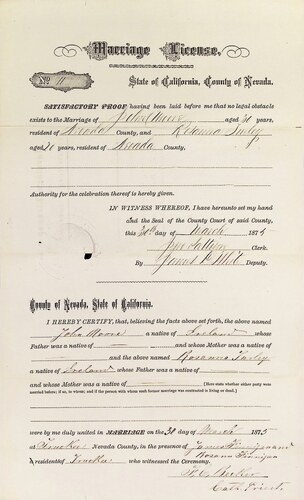 Marriage License.
No. 11
State of California, County of Nevada.
SATISFACTORY PROOF having been laid before me that no legal obstacle
exists to the Marriage of John Moore aged 30 years,
resident of Nevada County, and Rosanna
aged years, resident of Nevada County,
Authority for the celebration thereof is hereby given.
IN WITNESS WHEREOF, I have hereunto set my hand
and the Seal of the County Court of said County,
this day of March 1875
Clerk.
By James Deputy.
County of Nevada, State of California.
I HEREBY CERTIFY, that, believing the facts above set forth, the above named
John Moore a native of Ireland whose
Father was a native of and whose Mother was a native of
and the above named Rosanna
a native of Ireland whose Father was a native of
and whose Mother was a native of [Here state whether either party were
married before; if so, to whom; and if the person with whom such former marriage was contracted is living or dead.]
were by me duly united in MARRIAGE on the 31 day of March 1875
at Truckee Nevada County, in the presence of James and
Rosann
resident of Truckee who witnessed the ceremony.
Cath. Priest